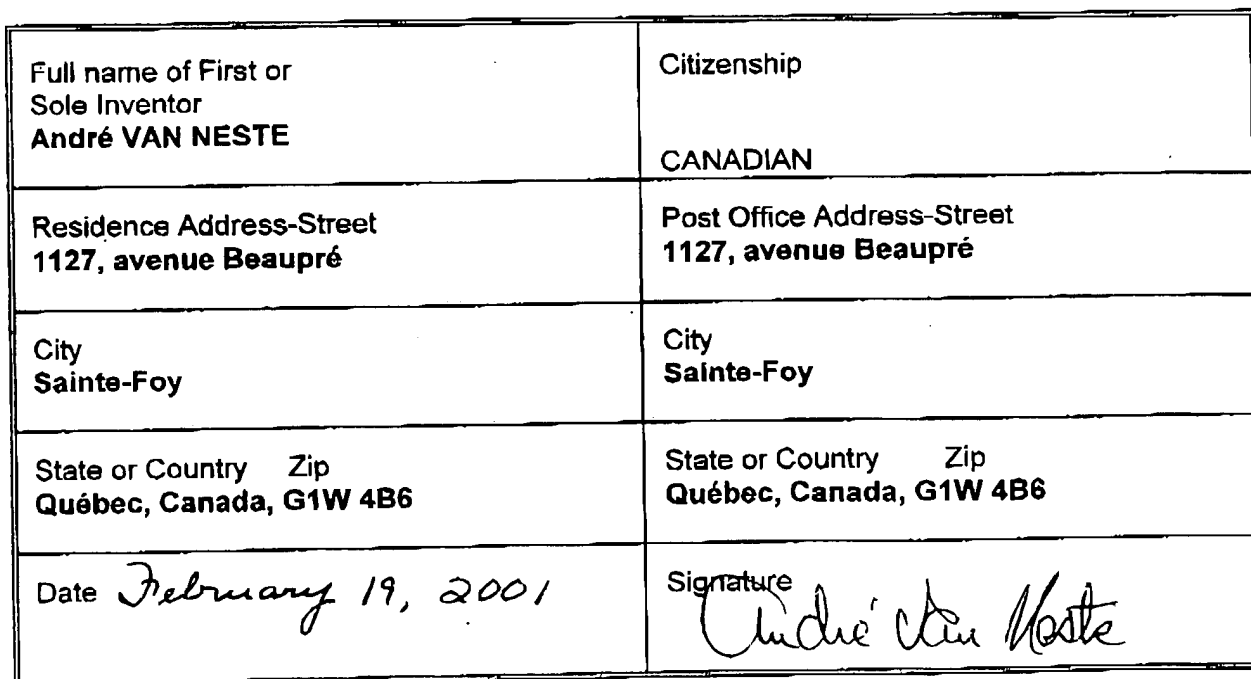 Full name of First or
Sole Inventor
André VAN NESTE
Citizenship
CANADIAN
Residence Address-Street
1127, avenue Beaupré
Post Office Address-Street
1127, avenue Beaupré
City
Sainte-Foy
City
Sainte-Foy
State or Country Zip
Québec, Canada, G1W 4B6
State or Country Zip
Québec, Canada, G1W 4B6
Date February 19, 2001
Signature
André Van Neste